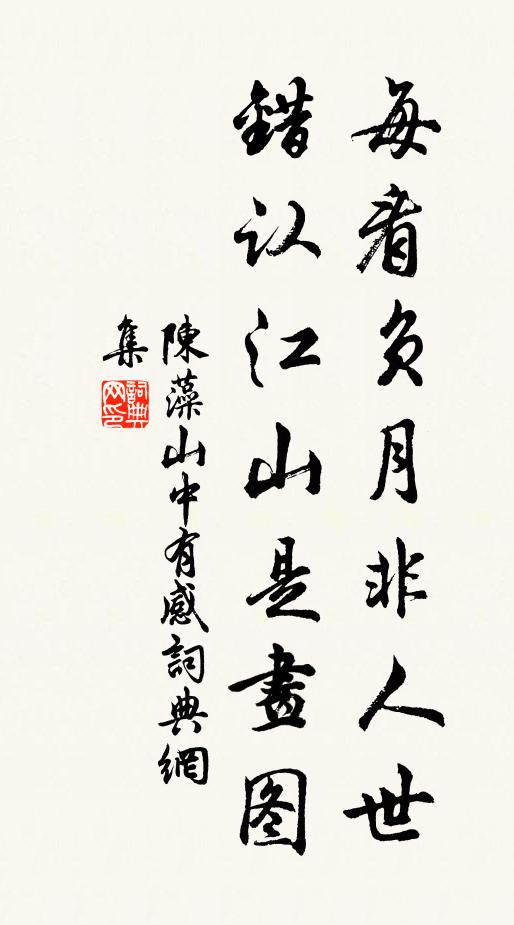 每看负月非人世
錯认江山是畫图
陳藻山中有感詞典網
集
詞典
网印